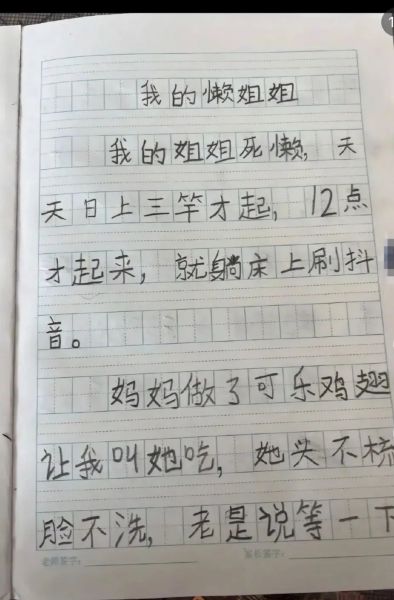 我的懒姐姐
我的姐姐死懒,天
天日上三竿才起,12点
才起来,就躺床上刷抖
音。
妈妈做了可乐鸡翅
让我叫她吃,她头不梳
脸不洗,老是说等一下
老师签字:
家长签字:
1